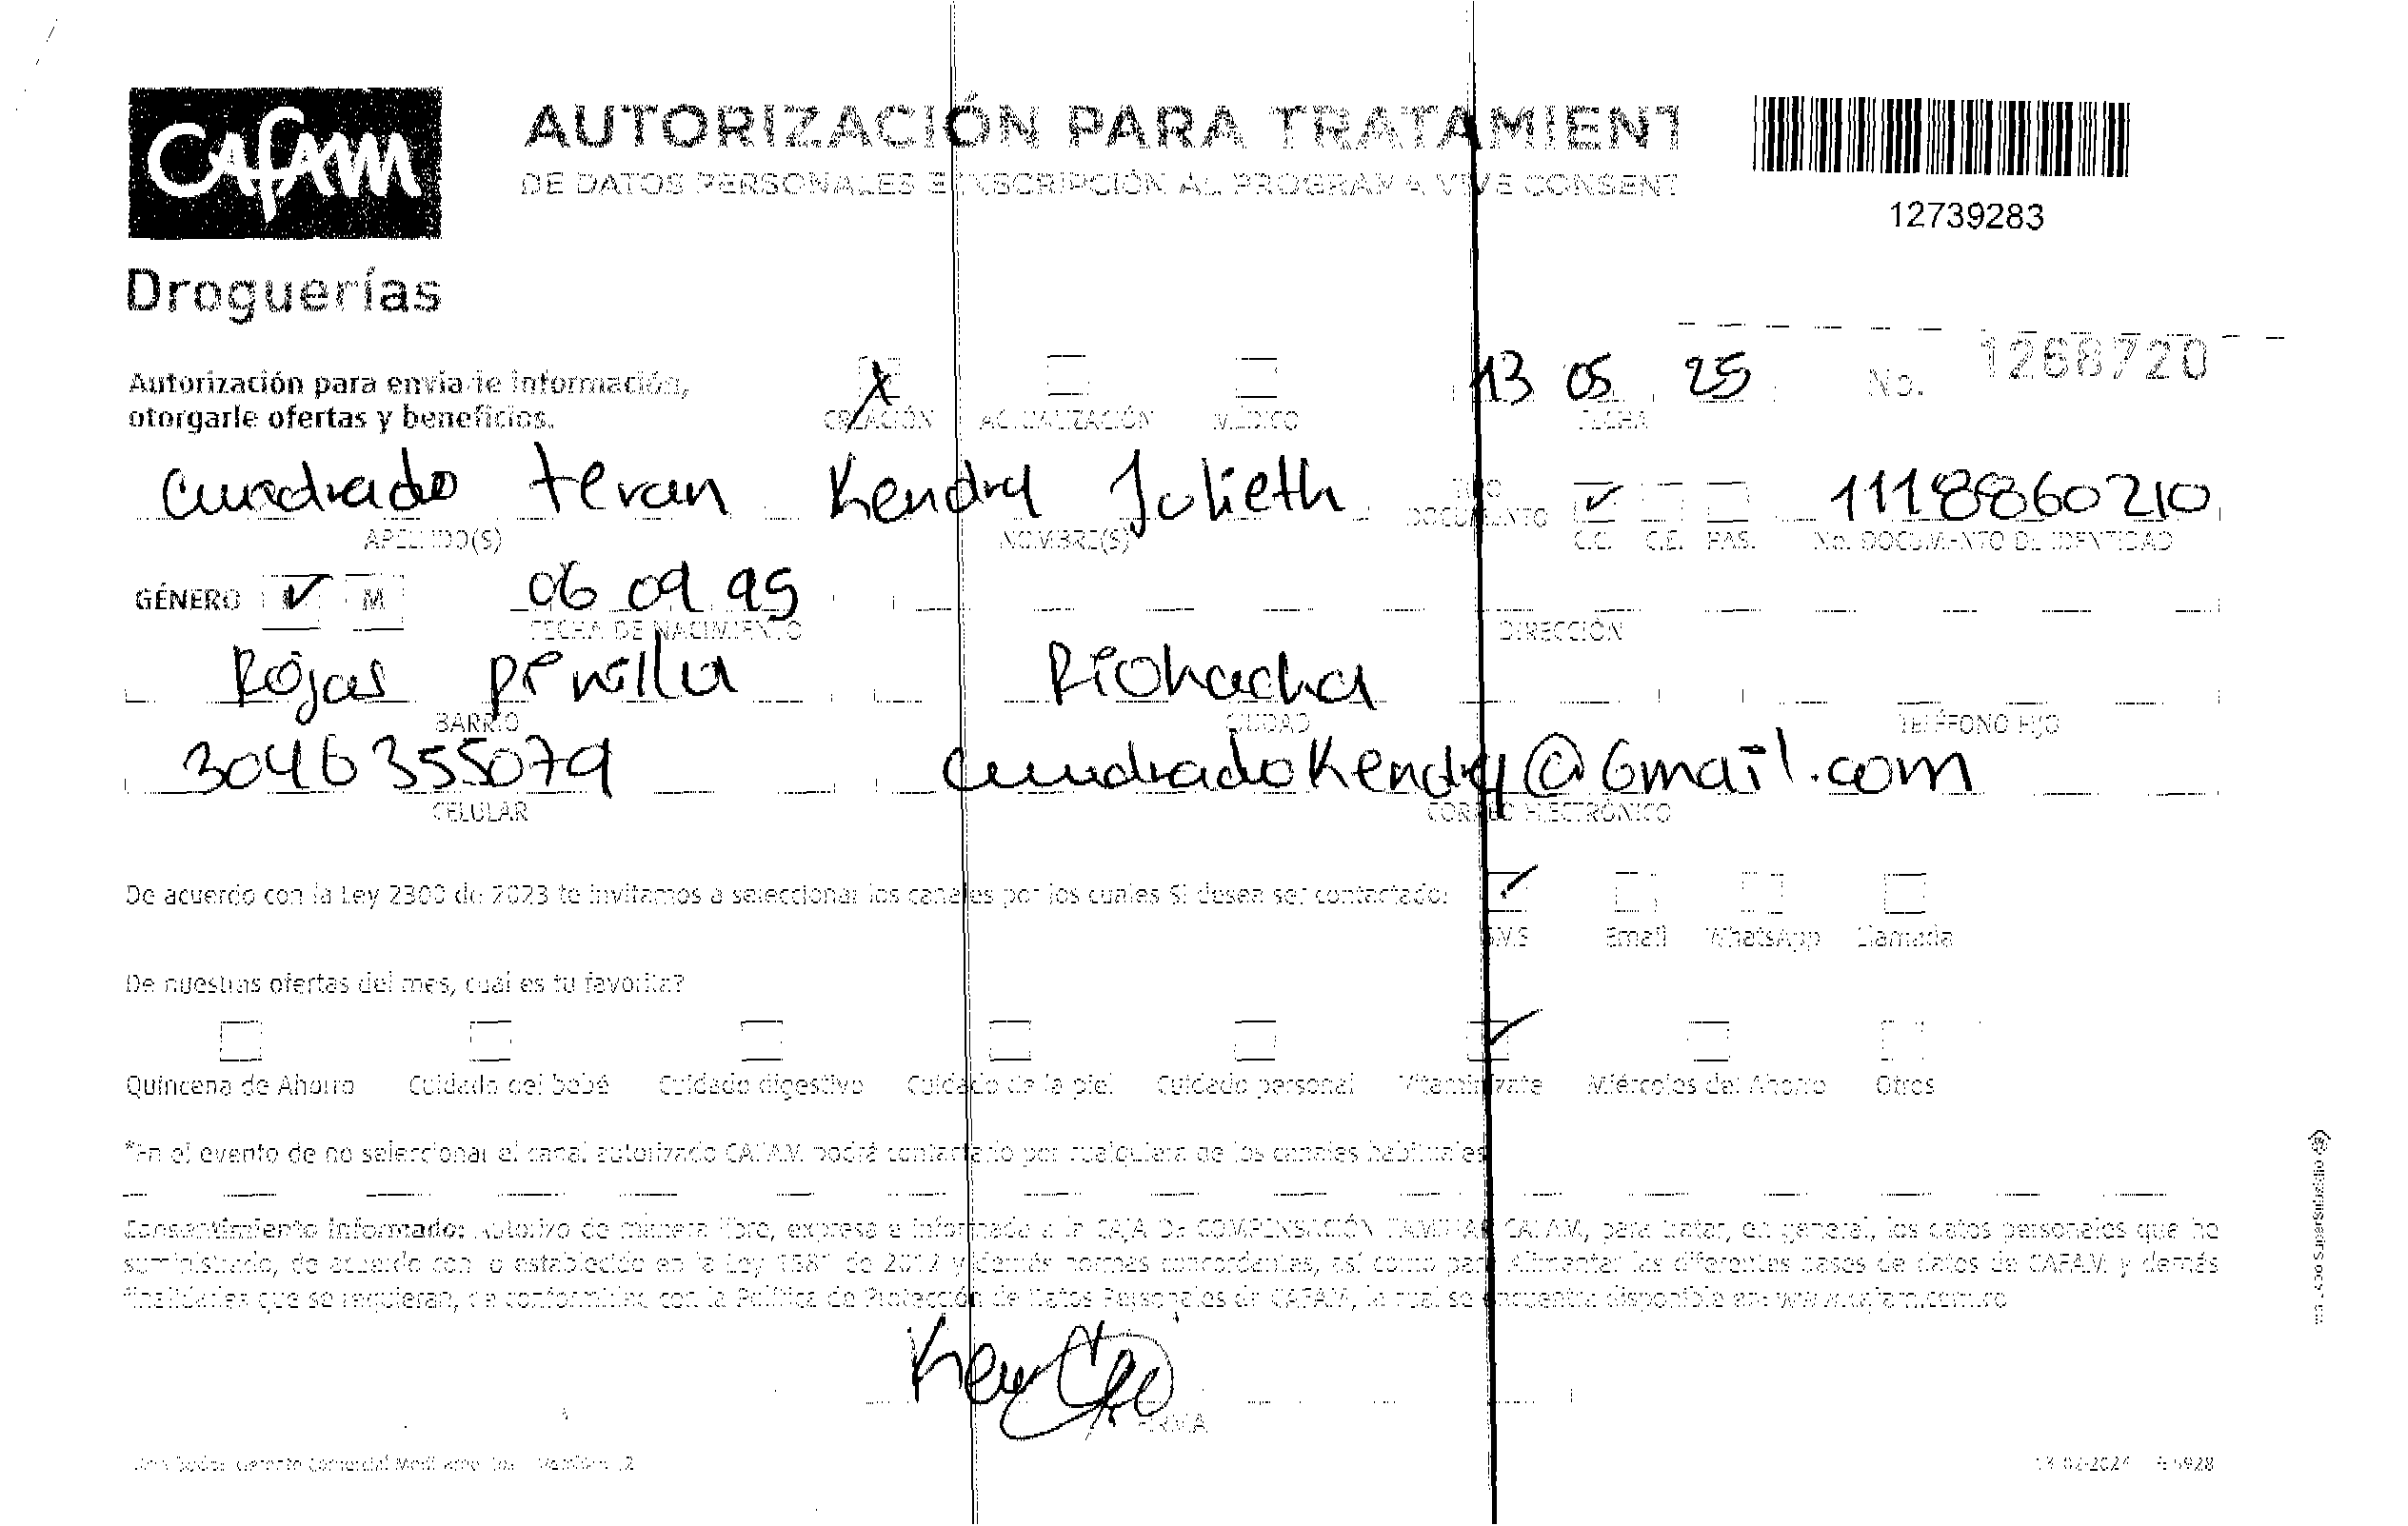 Cafam
Droguerías
AUTORIZACIÓN PARA TRATAMIENT
DE DATOS PERSONALES E INSCRIPCIÓN AL PROGRAMA VIVE CONSENT
12739283
Autorización para enviarle información,
otorgarle ofertas y beneficios.
X CREACIÓN ACTUALIZACIÓN MÉDICO
13 05 25 FECHA
No. 1268720
Cuadrado teran Kendry Julieth ✓ 1118860210
APELLIDO(S) NOMBRE(S) TIPO DOCUMENTO C.C. C.E. PAS. No. DOCUMENTO DE IDENTIDAD
GÉNERO ✓ M 06 09 95
FECHA DE NACIMIENTO DIRECCIÓN
Rojas pinilla Riohacha
BARRIO CIUDAD TELÉFONO FIJO
3046355079 CuadradoKendry@Gmail.com
CELULAR CORREO ELECTRÓNICO
De acuerdo con la Ley 2300 de 2023 te invitamos a seleccionar los canales por los cuales SI desea ser contactado: ✓
SMS Email WhatsApp Llamada
De nuestras ofertas del mes, cuál es tu favorita?
Quincena de Ahorro Cuidado del bebé Cuidado digestivo Cuidado de la piel Cuidado personal ✓ Vitamínizate Miércoles del Ahorro Otros
*En el evento de no seleccionar el canal autorizado CAFAM podrá contactarlo por cualquiera de los canales habituales
Consentimiento informado: Autorizo de manera libre, expresa e informada a la CAJA DE COMPENSACIÓN FAMILIAR CAFAM, para tratar, en general, los datos personales que he
suministrado, de acuerdo con lo establecido en la Ley 1581 de 2012 y demás normas concordantes, así como para Alimentar las diferentes bases de datos de CAFAM y demás
finalidades que se requieran, de conformidad con la Política de Protección de Datos Personales de CAFAM, la cual se encuentra disponible en: www.cafam.com.co
FIRMA
13-02-2024